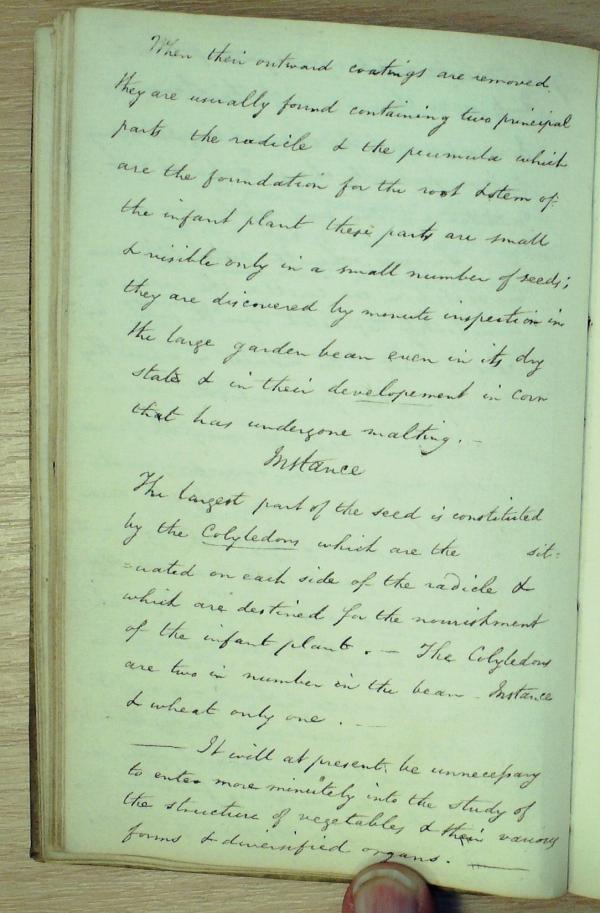 When their outward coatings are removed,
they are usually found containing two principal
parts the radicle & the pumula which
are the foundation for the root & stem of
the infant plant these parts are small
& visible only in a small number of seeds;
they are discovered by minute inspection in
the large garden bean even in its dry
state & in their developement in corn
that has undergone malting. –
Instance
The largest part of the seed is constituted
by the Cobyledons which are the sit=
=uated on each side of the radicle &
which are destined for the nourishment
of the infant plant. – The Cobyledons
are two in number in the bean – Instance
& wheat only one. —
— It will at present be unnecessary
to enter more minutely into the study of
the structure of vegetables & their various
forms & diversified organs. —